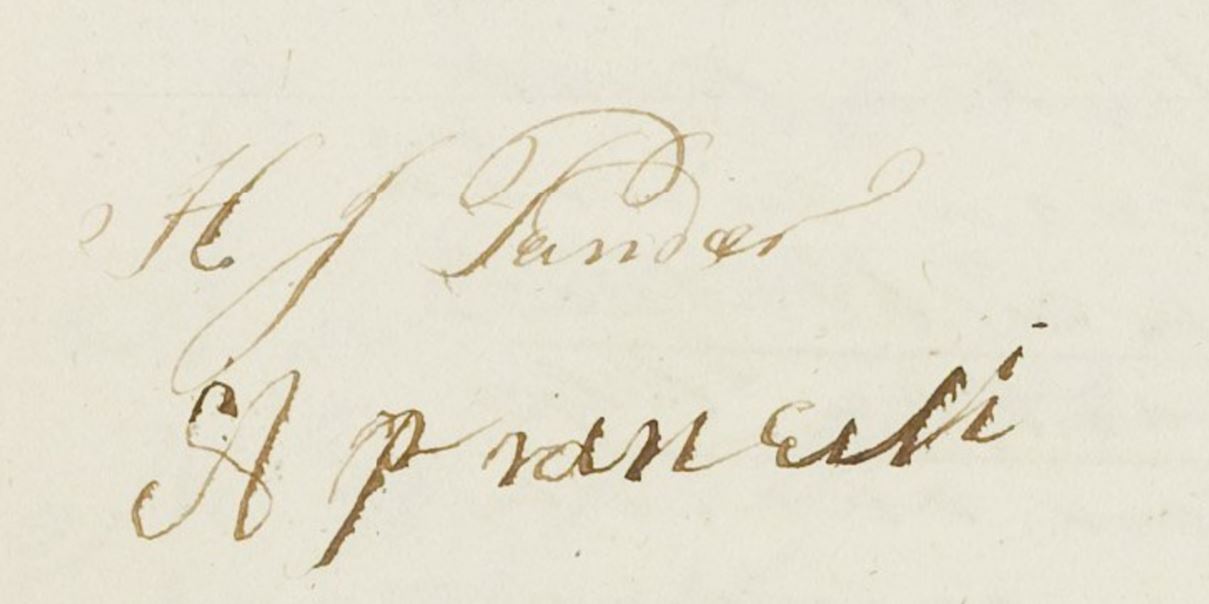 H J Pander
A p van Elk